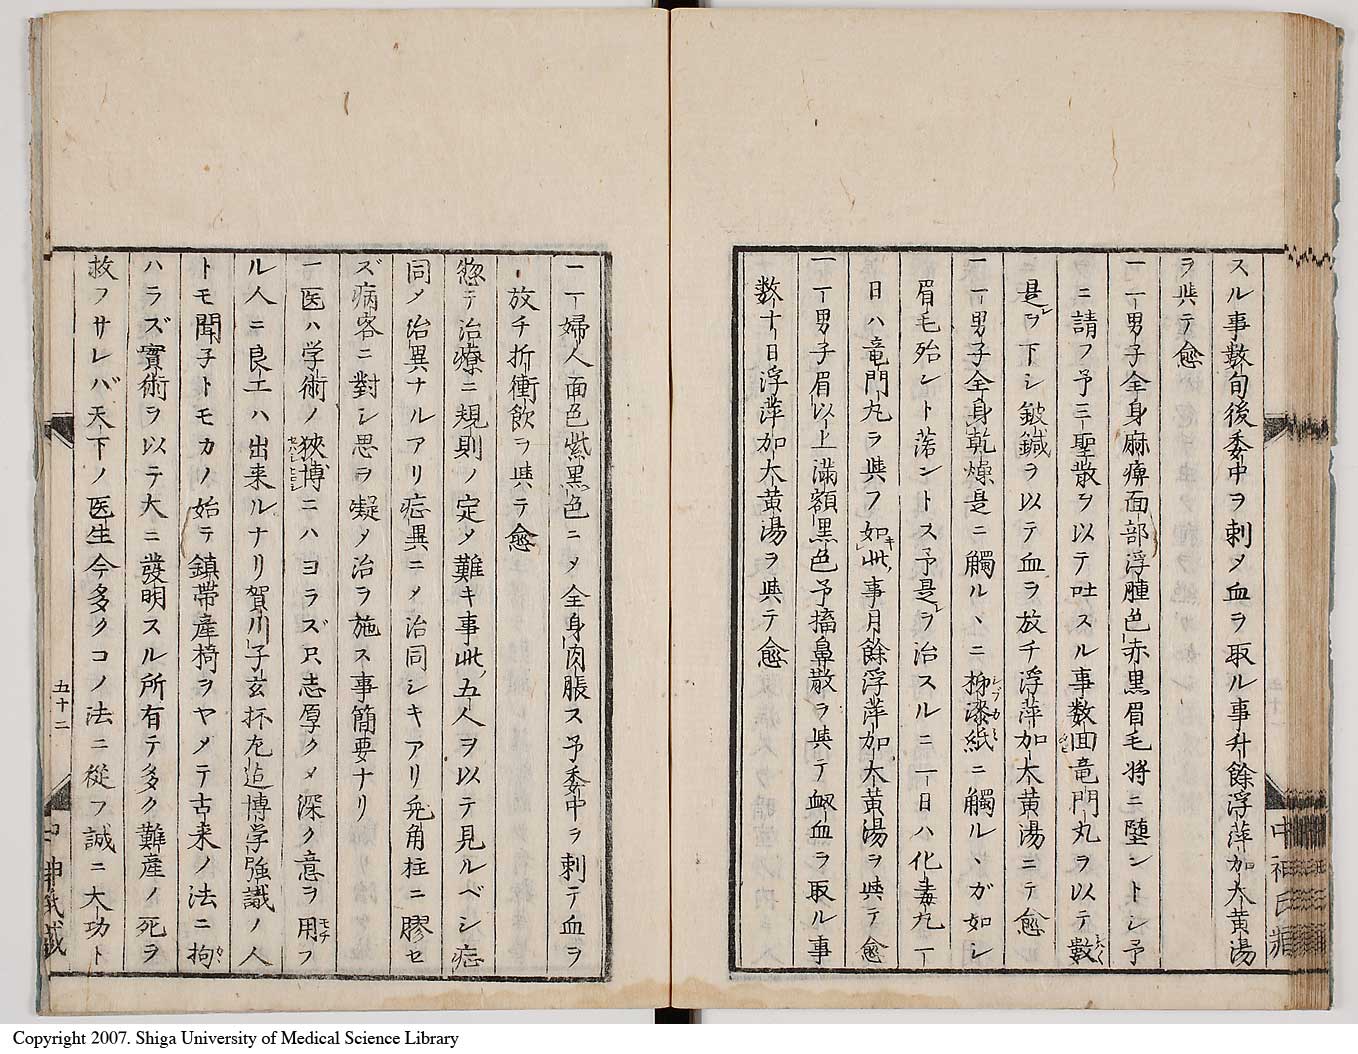 スル事数旬後委中ヲ刺メ血ヲ取ル事升餘浮萍加大黄湯
ヲ與テ愈
一一男子全身麻痺面部浮腫色赤黒眉毛将ニ墮ントシ予
ニ請フ予三聖散ヲ以テ吐スル事数面竜門丸ヲ以テ數
是ヲ下シ鈹鍼ヲ以テ血ヲ放チ浮萍加大黄湯ニテ愈
一一男子全身乾燥是ニ觸ルヽニ擦漆紙ニ觸ルヽガ如シ
眉毛殆ント落ントス予是ヲ治スルニ一日ハ化毒丸一
日ハ竜門丸ヲ與フ如此事月餘浮萍加大黄湯ヲ與テ愈
一一男子眉以上滿額黒色予搐鼻散ヲ與テ衂血ヲ取ル事
数十日浮萍加大黄湯ヲ與テ愈
中神氏蔵
一一婦人面色紫黒色ニメ全身肉脹ス予委中ヲ刺テ血ヲ
放チ折衝飲ヲ與テ愈
惣テ治療ニ規則ノ定メ難キ事此五人ヲ以テ見ルベシ症
同メ治異ナルアリ症異ニメ治同シキアリ兎角柱ニ膠セ
ズ病客ニ對シ思ヲ凝メ治ヲ施ス事簡要ナリ
一医ハ学術ノ狹博ニハヨラズ只志厚クメ深ク意ヲ用フ
ル人ニ良工ハ出来ルナリ賀川子玄杯左迠博学強識ノ人
トモ聞子トモカノ始テ鎮帯産椅ヲヤメテ古来ノ法ニ拘
ハラズ實術ヲ以テ大ニ發明スル所有テ多ク難産ノ死ヲ
救フサレバ天下ノ医生今多クコノ法ニ従フ誠ニ大功ト
五十二
中神氏蔵
Copyright 2007. Shiga University of Medical Science Library